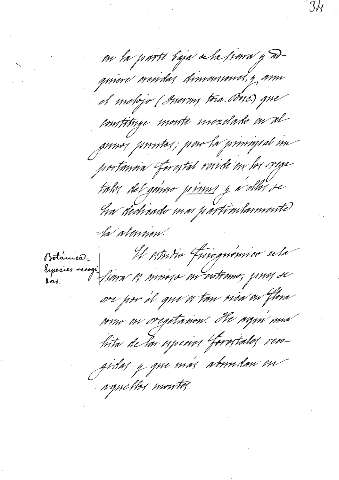 34
en la parte baja de la sierra y ad-
quiere crecidas dimensiones, y con
el melojo (Quercus toza. Bosc) que
constituye monte mezclado en al-
gunos puntos; pero la principal im
portancia forestal reside en los vege-
tales del género pinus y a ellos se
ha dedicado mas particularmente
la atencion.
Botánica-
Especies recogi
das
El estudio fisiognomico de la
sierra es curioso en extremo, pues se
ve por él que es tan rica en flora
como en vegetacion. He aquí una
lista de las especies forestales reco-
gidas y que más abundan en
aquellos montes